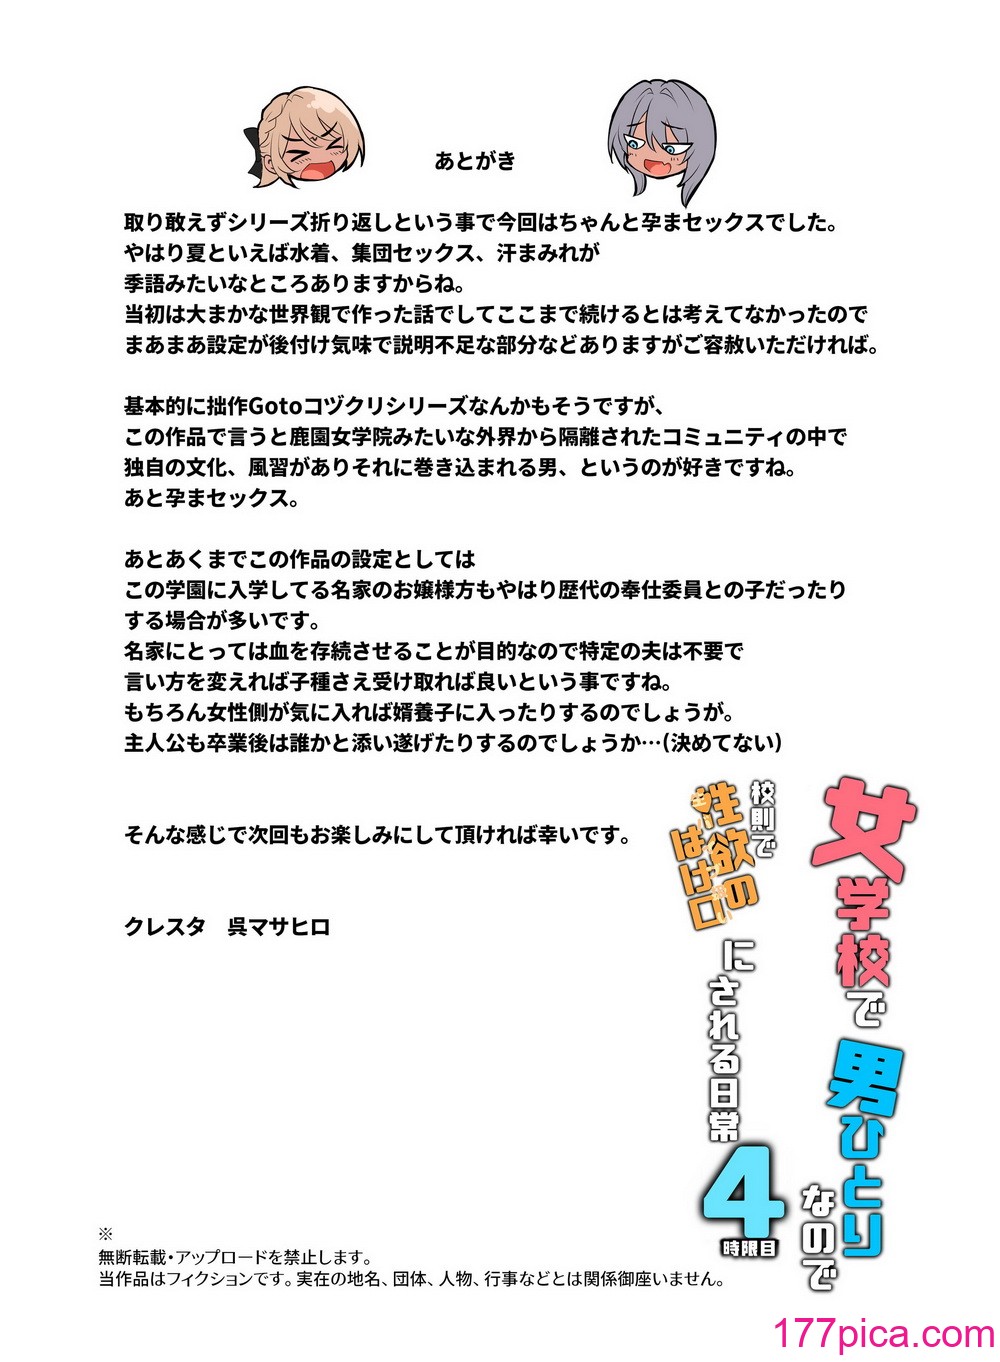 あとがき
取り敢えずシリーズ折り返しという事で今回はちゃんと孕まセックスでした。
やはり夏といえば水着、集団セックス、汗まみれが
季語みたいなところありますからね。
当初は大まかな世界観で作った話でしてここまで続けるとは考えてなかったので
まあまあ設定が後付け気味で説明不足な部分などありますがご容赦いただければ。
基本的に拙作Gotoコヅクリシリーズなんかもそうですが、
この作品で言うと鹿園女学院みたいな外界から隔離されたコミュニティの中で
独自の文化、風習がありそれに巻き込まれる男、というのが好きですね。
あと孕まセックス。
あとあくまでこの作品の設定としては
この学園に入学してる名家のお嬢様方もやはり歴代の奉仕委員との子だったり
する場合が多いです。
名家にとっては血を存続させることが目的なので特定の夫は不要で
言い方を変えれば子種さえ受け取れば良いという事ですね。
もちろん女性側が気に入れば婿養子に入ったりするのでしょうが。
主人公も卒業後は誰かと添い遂げたりするのでしょうか…(決めてない)
そんな感じで次回もお楽しみにして頂ければ幸いです。
クレスタ　呉マサヒロ
女学校で
男ひとり
なので
校則で
性欲の
はけ口
にされる日常
4
時限目
※
無断転載・アップロードを禁止します。
当作品はフィクションです。実在の地名、団体、人物、行事などとは関係御座いません。
177pica.com